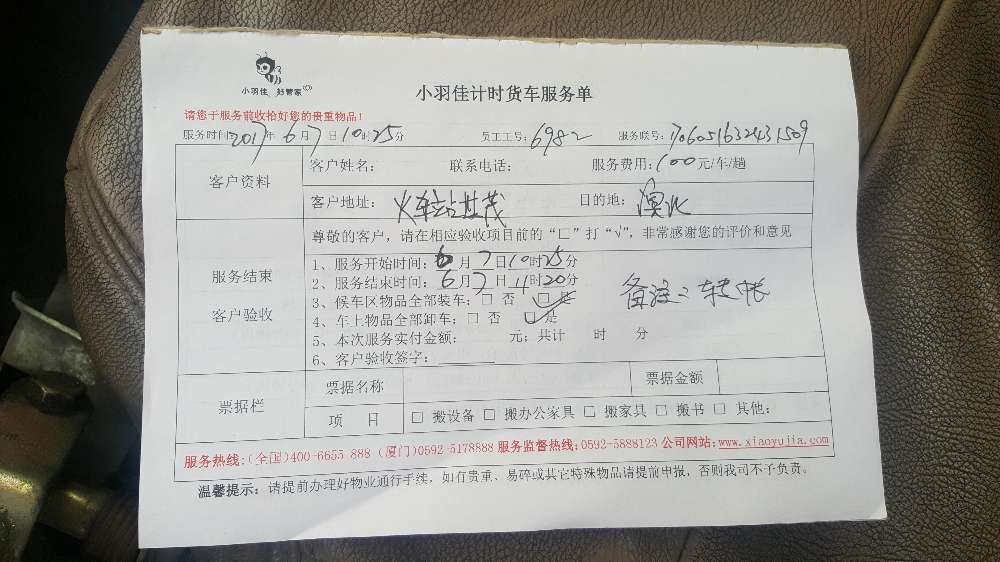 小羽佳 好管家
小羽佳计时货车服务单
请您于服务前收拾好您的贵重物品!
服务时间:2017年6月7日10时25分 员工工号:6982 服务联号:
客户资料
客户姓名: 联系电话: 服务费用:100元/车/趟
客户地址:火车站世茂 目的地:
服务结束
客户验收
尊敬的客户，请在相应验收项目前的“□”打“√”，非常感谢您的评价和意见
1、服务开始时间:6月7日10时25分
2、服务结束时间:6月7日11时20分
3、候车区物品全部装车:□ 否 □ 是
4、车上物品全部卸车:□ 否 □ 是
5、本次服务实付金额: 元;共计 时 分
6、客户验收签字:
备注:转帐
票据栏
票据名称 票据金额
项 目 □ 搬设备 □ 搬办公家具 □ 搬家具 □ 搬书 □ 其他:
服务热线:(全国)400-6655-888 (厦门)0592-5178888 服务监督热线:0592-5888123 公司网站:www.xiaoyujia.com
温馨提示:请提前办理好物业通行手续，如有贵重、易碎或其它特殊物品请提前申报，否则我司不予负责。